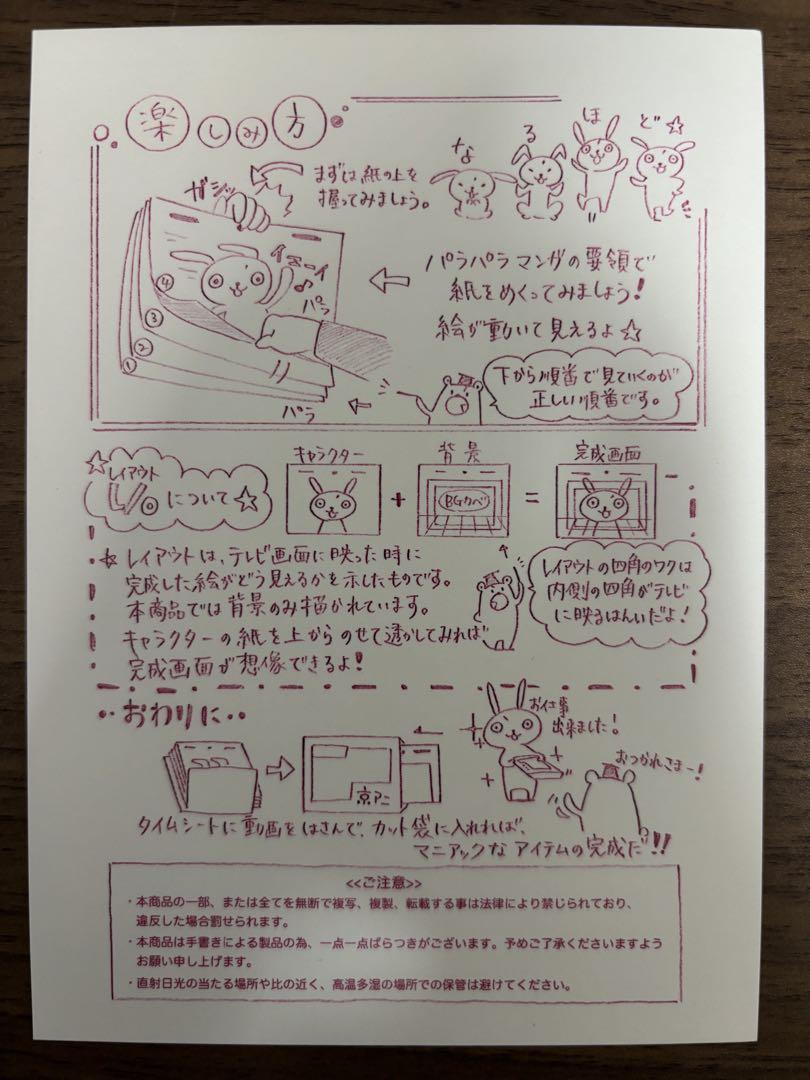 楽しみ方
なるほど☆
ガシッ
まずは、紙の上を
握ってみましょう。
イエーイ♪
パラ
④
③
②
①
パラ
パラパラマンガの要領で
紙をめくってみましょう!
絵が動いて見えるよ☆
下から順番で見ていくのが
正しい順番です。
☆レイアウト
L/oについて☆
キャラクター
+
背景
BGカベ
=
完成画面
☆レイアウトは、テレビ画面に映った時に
完成した絵がどう見えるかを示したものです。
本商品では背景のみ描かれています。
キャラクターの紙を上からのせて透かしてみれば
完成画面が想像できるよ!
レイアウトの四角のワクは
内側の四角がテレビ
に映るはんいだよ!
‥おわりに‥
京アニ
お仕事
出来ました!
おつかれさまー!
タイムシートに動画をはさんで、カット袋に入れれば、
マニアックなアイテムの完成だ!!
<<ご注意>>
・本商品の一部、または全てを無断で複写、複製、転載する事は法律により禁じられており、
違反した場合罰せられます。
・本商品は手書きによる製品の為、一点一点ばらつきがございます。予めご了承くださいますよう
お願い申し上げます。
・直射日光の当たる場所や比の近く、高温多湿の場所での保管は避けてください。